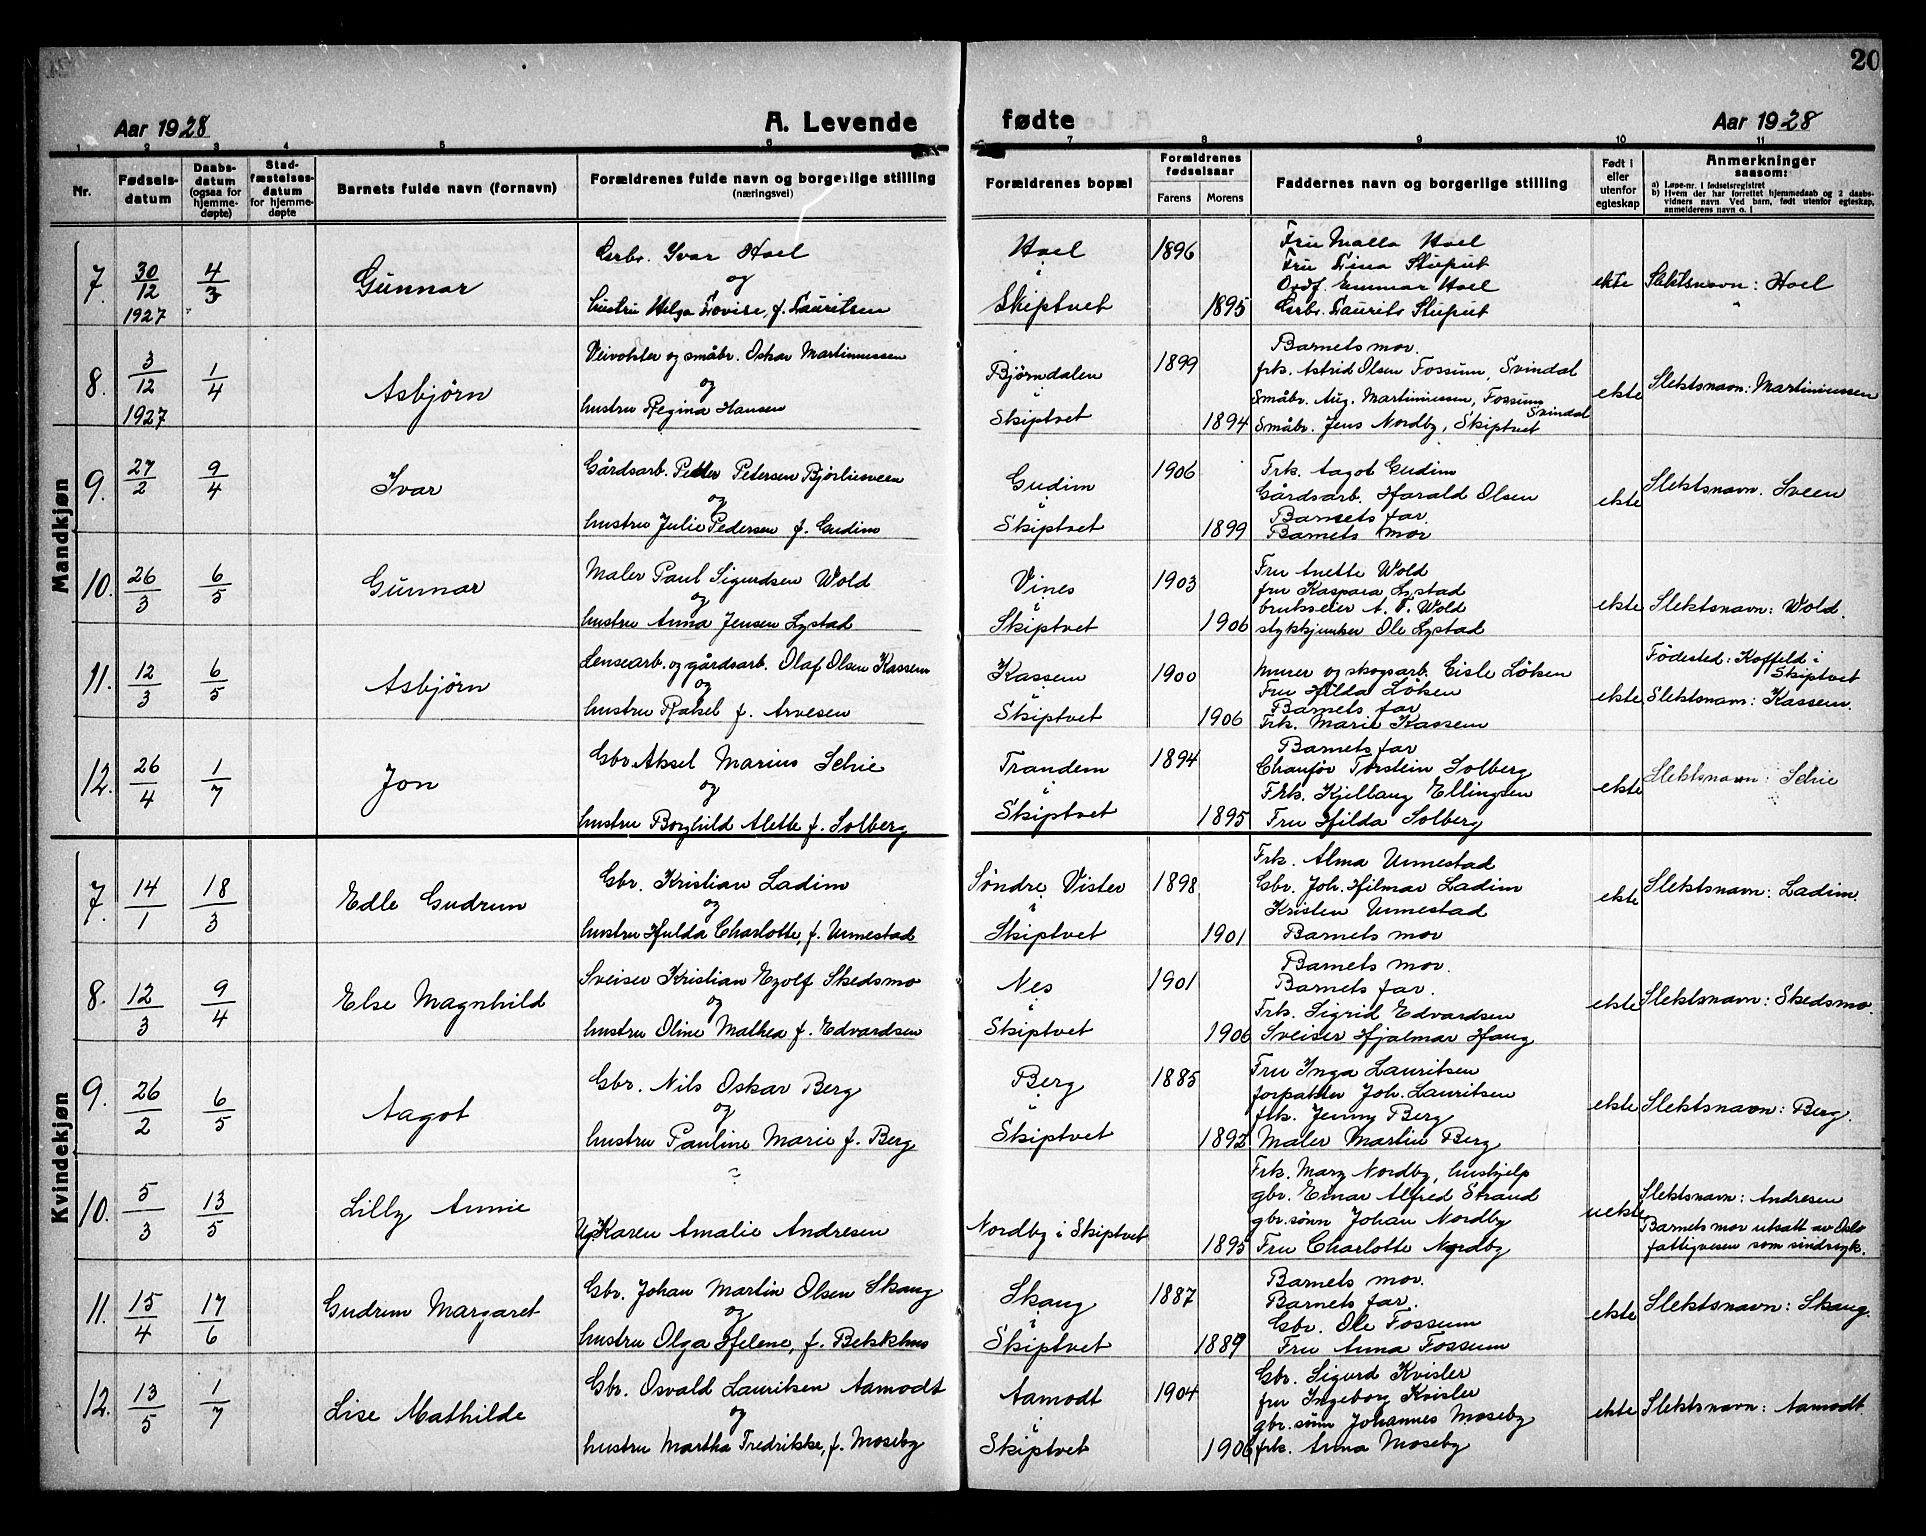 20
Aar 1928
A. Levende
fødte
Aar 1928
1 2 3 4 5 6 7 8 9 10 11
Nr.
Fødsels-
datum
Daabs-
datum
(ogsaa for
hjemme-
døpte)
Stad-
fæstelses-
datum
for hjemme-
døpte
Barnets fulde navn (fornavn)
Forældrenes fulde navn og borgerlige stilling
(næringsvei)
Forældrenes bopæl
Forældrenes
fødselsaar
Farens Morens
Faddernes navn og borgerlige stilling
Født i
eller
utenfor
egteskap
Anmerkninger
saasom:
a) Løpe-nr. i fødselsregistret
b) Hvem der har forrettet hjemmedaab og 2 daabs-
vidners navn. Ved barn, født utenfor egteskap,
anmelderens navn o. l
Mandkjøn
7. 30/12 1927 4/3
Gunnar
Grbr. Ivar Hoel
og
hustru Helga Lovise, f. Lauritsen
Hoel
i
Skiptvet
1896
1895
Fru Malla Hoel
Fru Lina Stuput
Ordf. Gunnar Hoel
Grbr. Laurits Stuput
ekte
Slektsnavn: Hoel
8. 3/12 1927 1/4
Asbjørn
Veivokter og småbr. Oskar Martinussen
og
hustru Regina Hansen
Bjørndalen
i
Skiptvet
1899
1894
Barnets mor.
frk. Astrid Olsen Fossum, Svindal
Småbr. Aug. Martiniussen, Fossum
Svindal
Småbr. Jens Nordby, Skiptvet
ekte
Slektsnavn: Martiniussen
9. 27/2 9/4
Ivar
Gårdsarb. Petter Petersen Bjørlisveen
og
hustru Julie Pedersen f. Gudim
Gudim
i
Skiptvet
1906
1899
Frk. Aagot Gudim
Gårdsarb. Harald Olsen
Barnets far.
Barnets mor
ekte
Slektsnavn. Sveen
10. 26/3 6/5
Gunnar
Maler Paul Sigurdsen Wold
og
hustru Anna Jensen Lystad
Vines
i
Skiptvet
1903
1906
Fru Anette Wold
fru Kaspara Lystad
brukseier A. T. Wold
stykkjunker Ole Lystad
ekte
Slektsnavn: Wold.
11. 12/3 6/5
Asbjørn
Lensearb. og gårdsarb. Olaf Olsen Kassem
og
hustru Rakel f. Arvesen
Kassem
i
Skiptvet
1900
1906
Murer og skogsarb. Gisle Løken
Fru Hilda Løken
Barnets far
Frk. Marie Kassem
ekte
Fødested: Koffeld i
Skiptvet
Slektsnavn: Kassem.
12. 26/4 1/7
Jon
Gbr. Aksel Marius Schie
og
hustru Borghild Alette f. Solberg
Trandem
i
Skiptvet
1894
1895
Barnets far
Chauför Torstein Solberg
Frk. Kjellaug Ellingsen
Fru Hilda Solberg
ekte
Slektsnavn: Schie
Kvindekjøn
7. 14/1 18/3
Edle Gudrun
Gbr. Kristian Ladim
og
hustru Hulda Charlotte, f. Unnestad
Søndre Vister
i
Skiptvet
1898
1901
Frk. Alma Unnestad
Gbr. Joh. Hilmar Ladim
Kristen Unnestad
Barnets mor
ekte
Slektsnavn: Ladim.
8. 12/3 9/4
Else Magnhild
Sveiser Kristian Eyolf Skedsmo
og
hustru Oline Mathea f. Edvardsen
Nes
i
Skiptvet
1901
1906
Barnets mor.
Barnets far.
Frk. Sigrid Edvardsen
Sveiser Hjalmar Haug
ekte
Slektsnavn: Skedsmo.
9. 26/2 6/5
Aagot
Gbr. Nils Oskar Berg
og
hustru Pauline Marie f. Berg
Berg
i
Skiptvet
1885
1892
Fru Inga Lauritsen
forpakter Joh. Lauritsen
frk. Jenny Berg
Maler Martin Berg
ekte
Slektsnavn: Berg.
10. 5/3 13/5
Lilly Annie
Ug. Karen Amalie Andresen
Nordby i Skiptvet
1895
Frk. Mary Nordby, hushjelp
gbr. Einar Alfred Strand
gbr.sønn Johan Nordby
Fru Charlotte Nordby
uekte
Slektsnavn: Andresen
Barnets mor utsatt av Oslo
fattigvesen som sindssyk.
11. 15/4 17/6
Gudrun Margaret
Gbr. Johan Martin Olsen Skaug
og
hustru Olga Helene, f. Bekkhus
Skaug
i
Skiptvet
1887
1889
Barnets mor.
Barnets far.
Gbr. Ole Fossum
Fru Anna Fossum
ekte
Slektsnavn: Skaug.
12. 13/5 1/7
Lise Mathilde
Gbr. Osvald Lauritsen Aamodt
og
hustru Martha Fredrikke, f. Moseby
Aamodt
i
Skiptvet
1904
1906
Gbr. Sigurd Kvisler
fru Ingeborg Kvisler
gbr. sønn Johannes Moseby
frk. Anna Moseby
ekte
Slektsnavn: Aamodt